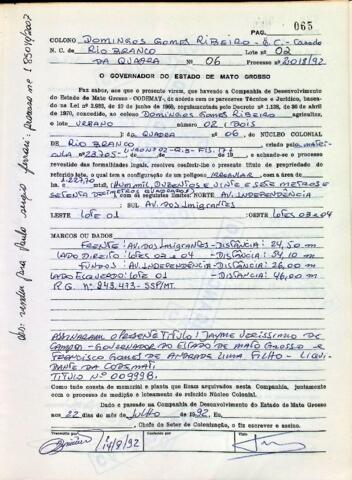 PAG. 065
COLONO DOMINGOS GOMES RIBEIRO - B.C. - Casado
N. C. de RIO BRANCO Lote nº 02
DA QUADRA Nº 06 Processo nº 2018/92
O GOVERNADOR DO ESTADO DE MATO GROSSO
Faz saber, aos que o presente virem, que havendo a Companhia de Desenvolvimento
do Estado de Mato Grosso - CODEMAT-, de acordo com os pareceres Técnico e Jurídico, basea-
do na Lei nº 2.925, de 10 de junho de 1969, regulamentada pelo Decreto nº 1.138, de 30 de abril
de 1970, concedido, ao colono DOMINGOS GOMES RIBEIRO agricultor,
o lote URBANO número 02 (DOIS
): da QUADRA nº 06, NÚCLEO COLONIAL
DE RIO BRANCO, criado pela MATRI-
CULA nº 23.705- de de de 19 , e achando-se o processo
revestido das formalidades legais, resolveu conferir-lhe o presente título de propriedade do
referido lote, o qual tem a configuração de um polígono IRREGULAR, com a área de
1.227,70
ha. e mts2, (HUM MIL, DUZENTOS E VINTE E SETE METROS E
SETENTA DECÍMETROS QUADRADOS)
com os seguintes limites: NORTE AV. INDEPENDÊNCIA
SUL AV. DOS IMIGRANTES
LESTE LOTE 01 OESTE LOTES 03 e 04
MARCOS OU DADOS
FRENTE: AV. DOS IMIGRANTES - DISTÂNCIA: 24,50 m
LADO DIREITO: LOTES 03 e 04 - DISTÂNCIA: 54,10 m
FUNDOS: AV. INDEPENDÊNCIA - DISTÂNCIA: 26,00 m
LADO ESQUERDO: LOTE 01 - DISTÂNCIA: 46,00 m
R.G. Nº 243.473 - SSP/MT.
ASSINARAM O PRESENTE TÍTULO: JAYME VERISSIMO DE
CAMPOS - GOVERNADOR DO ESTADO DE MATO GROSSO E
FRANCISCO GOMES DE ANDRADE LIMA FILHO - LIQUI-
DANTE DA CODEMAT
TITULO Nº 00999B.
Como tudo consta do memorial e planta que ficam arquivados nesta Companhia, juntamente
com o processo de medição e loteamento do referido Núcleo Colonial.
Dado e passado na Companhia de Desenvolvimento do Estado de Mato Grosso
aos 22 dias do mês de JULHO de 1992. Eu,
, Chefe do Setor de Colonização, o fiz escrever e assino.
Transcrito por Conferido por Visto
14/8/92
obs: vendeu para Paulo Sergio Ferrari: processo nº 185044/2007